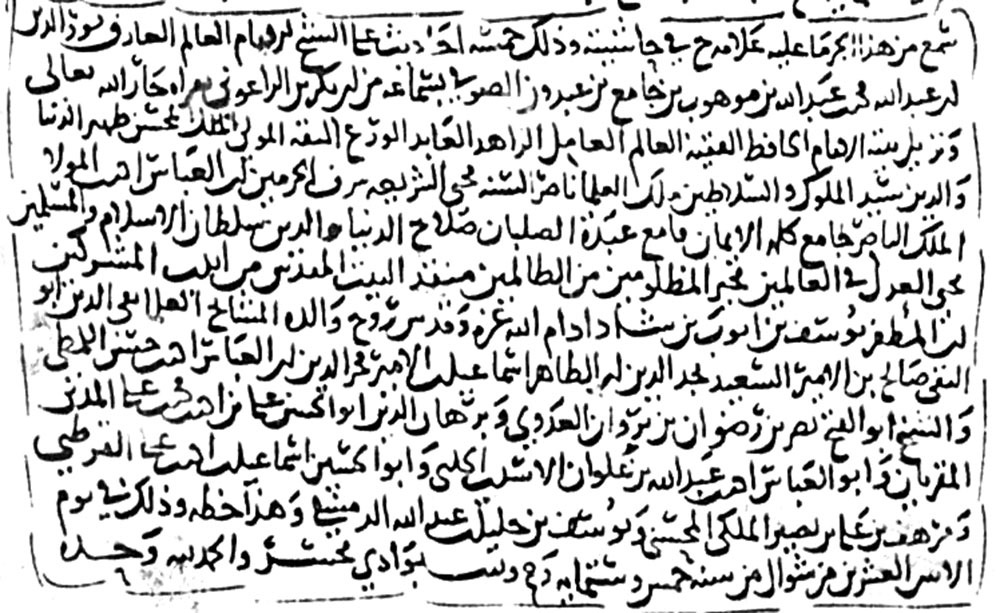 سمع من هذا الجزء ما عليه علامة ح في حاشيته وذلك خمسة احاديث على الشيخ الامام العالم العارف نور الدين
ابي عبد الله محمد بن عبد الله بن موهوب بن جامع بن عبدون الصوفي بسماعه من ابي بكر بن الزاغوني بقراه جار الله تعالى
ونزيل بيته الامام الحافظ الفقيه العالم العامل الزاهد العابد الورع الثقة المولى الملك المحسن ظهير الدنيا
والدين سيد الملوك والسلاطين ملك العلما ناصر السنة محيي الشريعة شرف الحرمين ابي العباس احمد بن المولا
الملك الناصر جامع كلمة الايمان قامع عبدة الصلبان صلاح الدنيا والدين سلطان الاسلام والمسلمين
محيي العدل في العالمين مجير المظلومين من الظالمين منقذ البيت المقدس من ايدي المشركين
ابي المظفر يوسف بن ايوب بن شاذ ادام الله عزه وقدس روح والده المشايخ تقي الدين ابو
التقى صالح بن الامير السعيد مجد الدين ابي الطاهر اسماعيل بن الامير فخر الدين ابي العباس احمد بن حسن اللمطي
والشيخ ابو الفتح نصر بن رضوان بن بروان العدوي وبرهان الدين ابو الحسن علي بن احمد بن محمد بن علي المدني
المقريان وابو العباس احمد بن عبد الله بن علوان الاسدي الحلبي وابو الحسين اسماعيل بن احمد بن علي القرطبي
ومرهف بن علي بن نصير الملكي المحسني ويوسف بن خليل بن عبد الله الدمشقي وهذا خطه وذلك في يوم
الاثنين العشرين من شوال من سنة خمس وستمايه بوادي محسر والحمد لله وحده